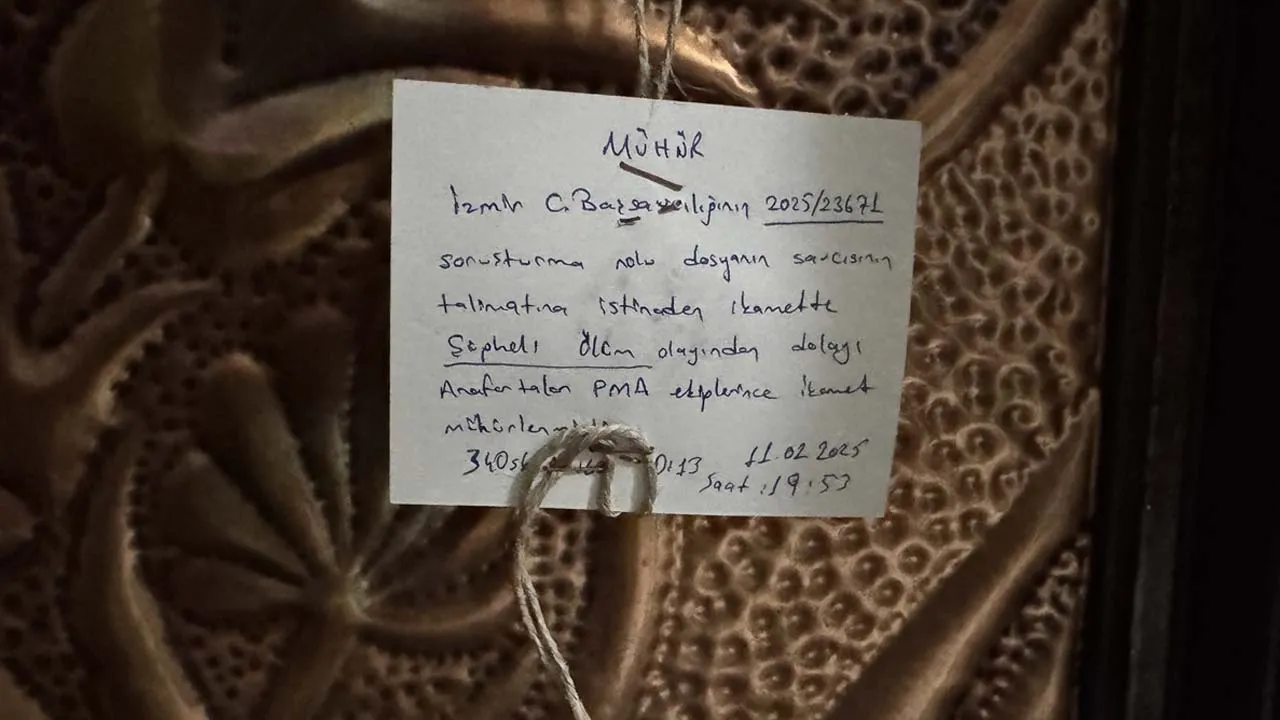 MÜHÜR
İzmir C. Başsavcılığının 2025/23671
soruşturma nolu dosyanın savcısının
talimatına istinaden ikamette
Şüpheli Ölüm olayından dolayı
Anafartalar PMA ekiplerince ikamet
mühürlenmiştir
0:13 11.02.2025
Saat :19:53